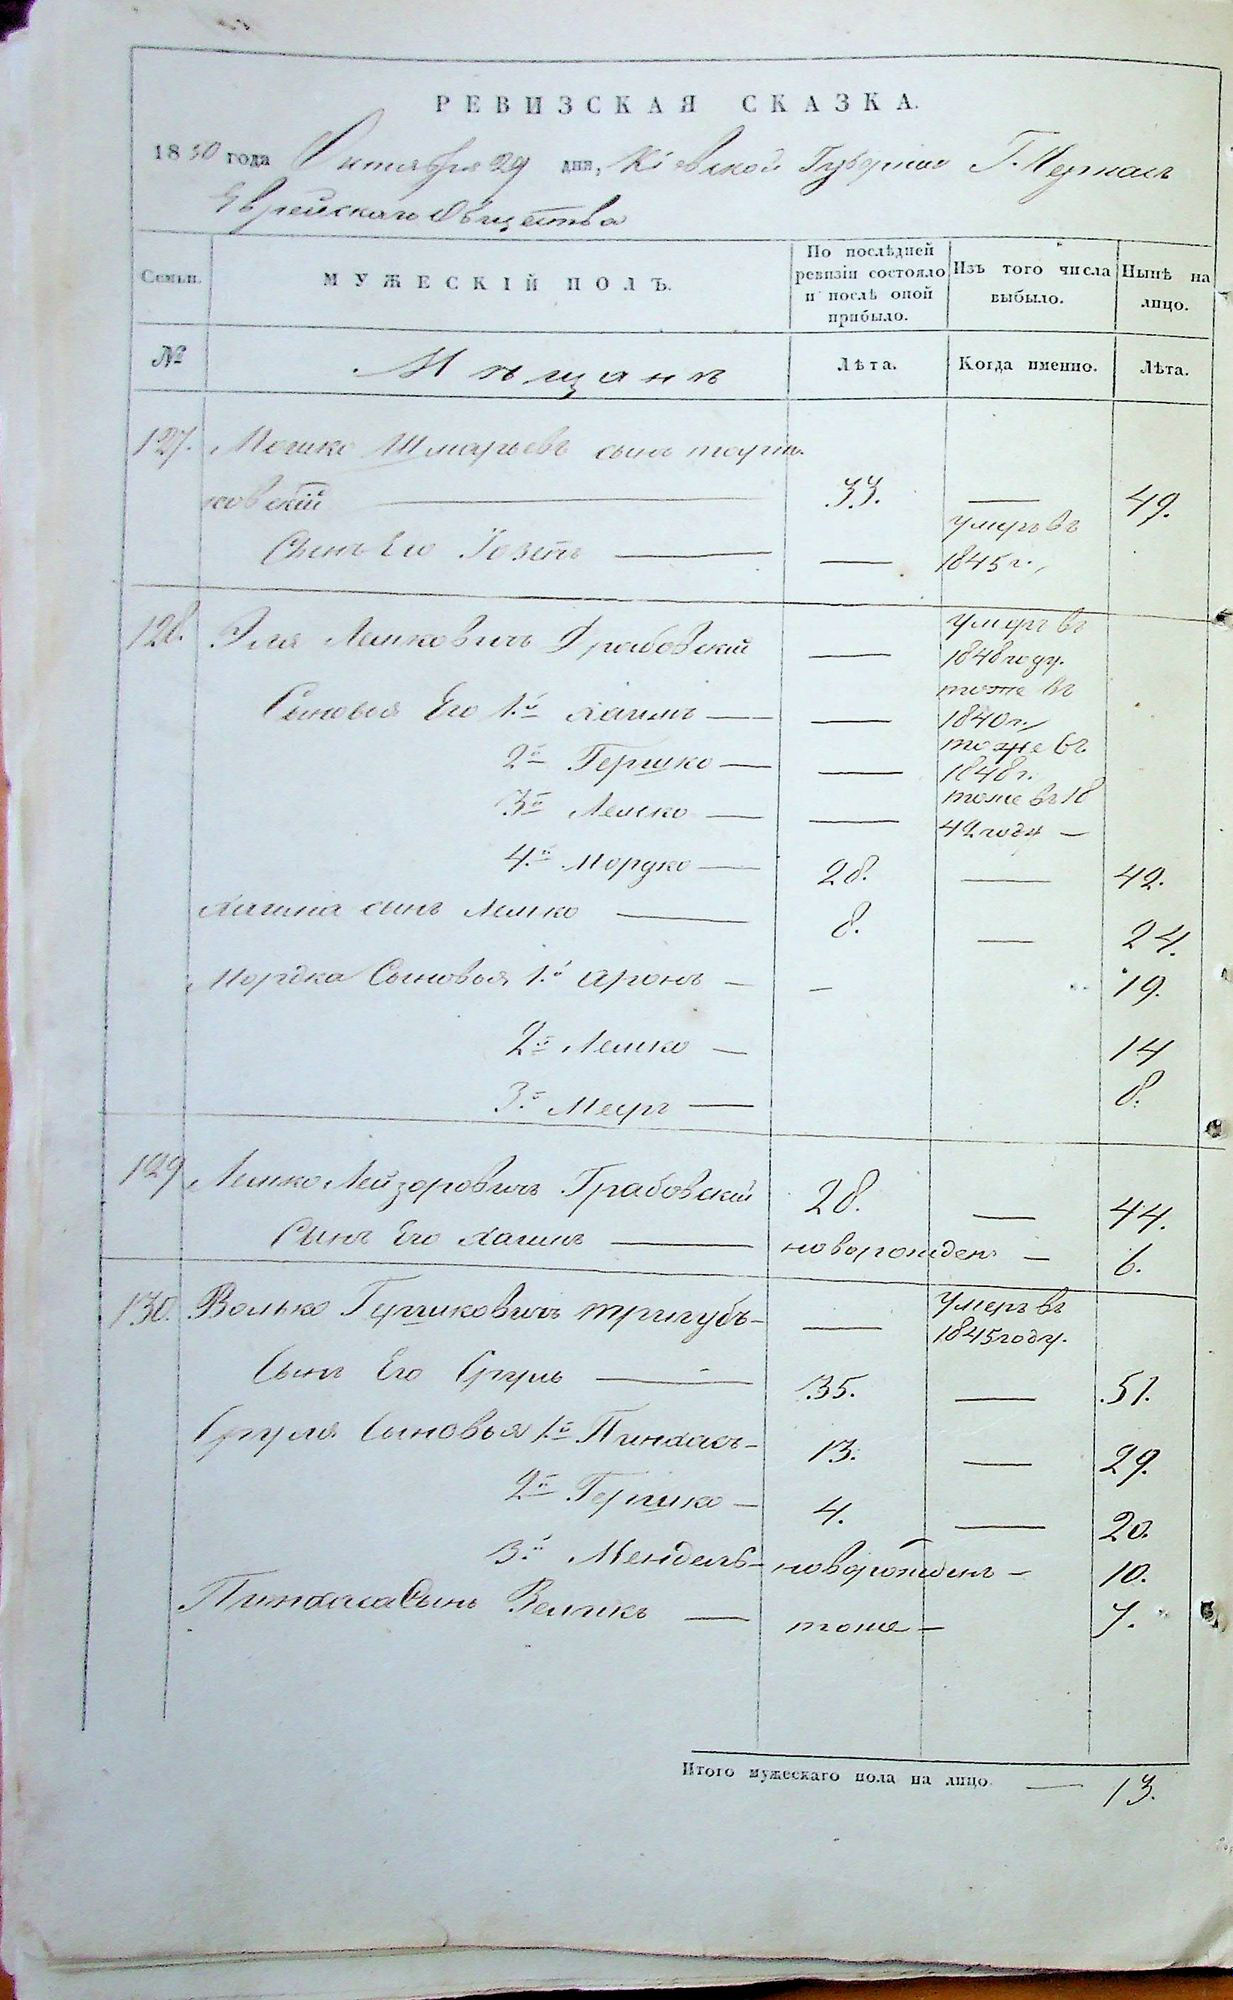 РЕВИЗСКАЯ СКАЗКА.
1850 года Октября 29 дня, Кіевской Губерніи Г. Черкасъ
Еврейскаго Общества
Семьи.
МУЖЕСКІЙ ПОЛЪ.
По послѣдней ревизіи состояло и послѣ оной прибыло.
Изъ того числа выбыло.
Нынѣ на лицо.
№
Мѣщанѣ
Лѣта.
Когда именно.
Лѣта.
127. Мошко Шмарьевъ сынъ
ковскій — 33. — 49.
Сынъ Его — — умеръ въ 1845 г.
128. Эля Лемковичъ Грабовскій — умеръ въ 1848 году.
Сыновья Его 1.й Хаимъ — — тоже въ 1840 г.
2й Гершко — — тоже въ 1848 г.
3й Лемко — — тоже въ 1842 году —
4.й Мордко — 28. — 42.
Хаима сынъ Лемко — 8. — 24.
Мордка Сыновья 1.й Аронъ — — 19.
2й Лемко — 14
3.й Меер — 8.
129 Лемко Лейзоровичъ Грабовскій 28. — 44.
Сынъ Его Хаимъ — новорожден — 6.
130. Волько Гершковичъ Тригубъ — — умеръ въ 1845 году.
Сынъ Его Сруль — 35. — 51.
Сруля Сыновья 1.й Пинхасъ — 13. — 29.
2й Гершко — 4. — 20.
3.й Мендель — новорожден — 10.
Пинхаса Сынъ — тоже — 7.
Итого мужескаго пола на лицо — 13.